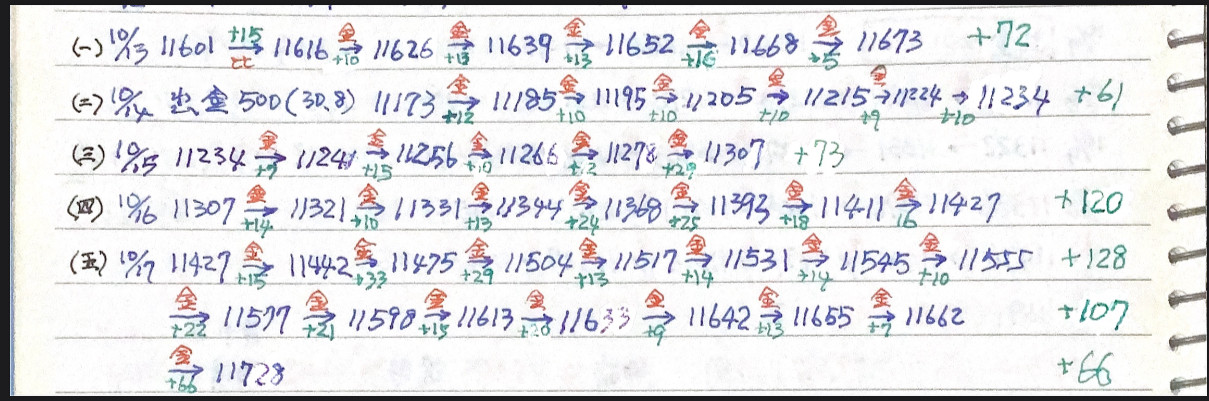 (一) 10/13 11601 +15 比 → 11616 金 → +10 11626 金 → +13 11639 金 → +13 11652 金 → +16 11668 金 → +5 11673 +72
(二) 10/14 出金 500 (30.8) 11173 金 → +12 11185 金 → +10 11195 金 → +10 11205 金 → +10 11215 金 → +9 11224 → +10 11234 +61
(三) 10/15 11234 金 → +7 11241 金 → +15 11256 金 → +10 11266 金 → +12 11278 金 → +29 11307 +73
(四) 10/16 11307 金 → +14 11321 金 → +10 11331 金 → +13 11344 金 → +24 11368 金 → +25 11393 金 → +18 11411 金 → 16 11427 +120
(五) 10/17 11427 金 → +15 11442 金 → +33 11475 金 → +29 11504 金 → +13 11517 金 → +14 11531 金 → +14 11545 金 → +10 11555 +128
金 → +22 11577 金 → +21 11598 金 → +15 11613 金 → +20 11633 金 → +9 11642 金 → +13 11655 金 → +7 11662 +107
金 → +66 11728 +66